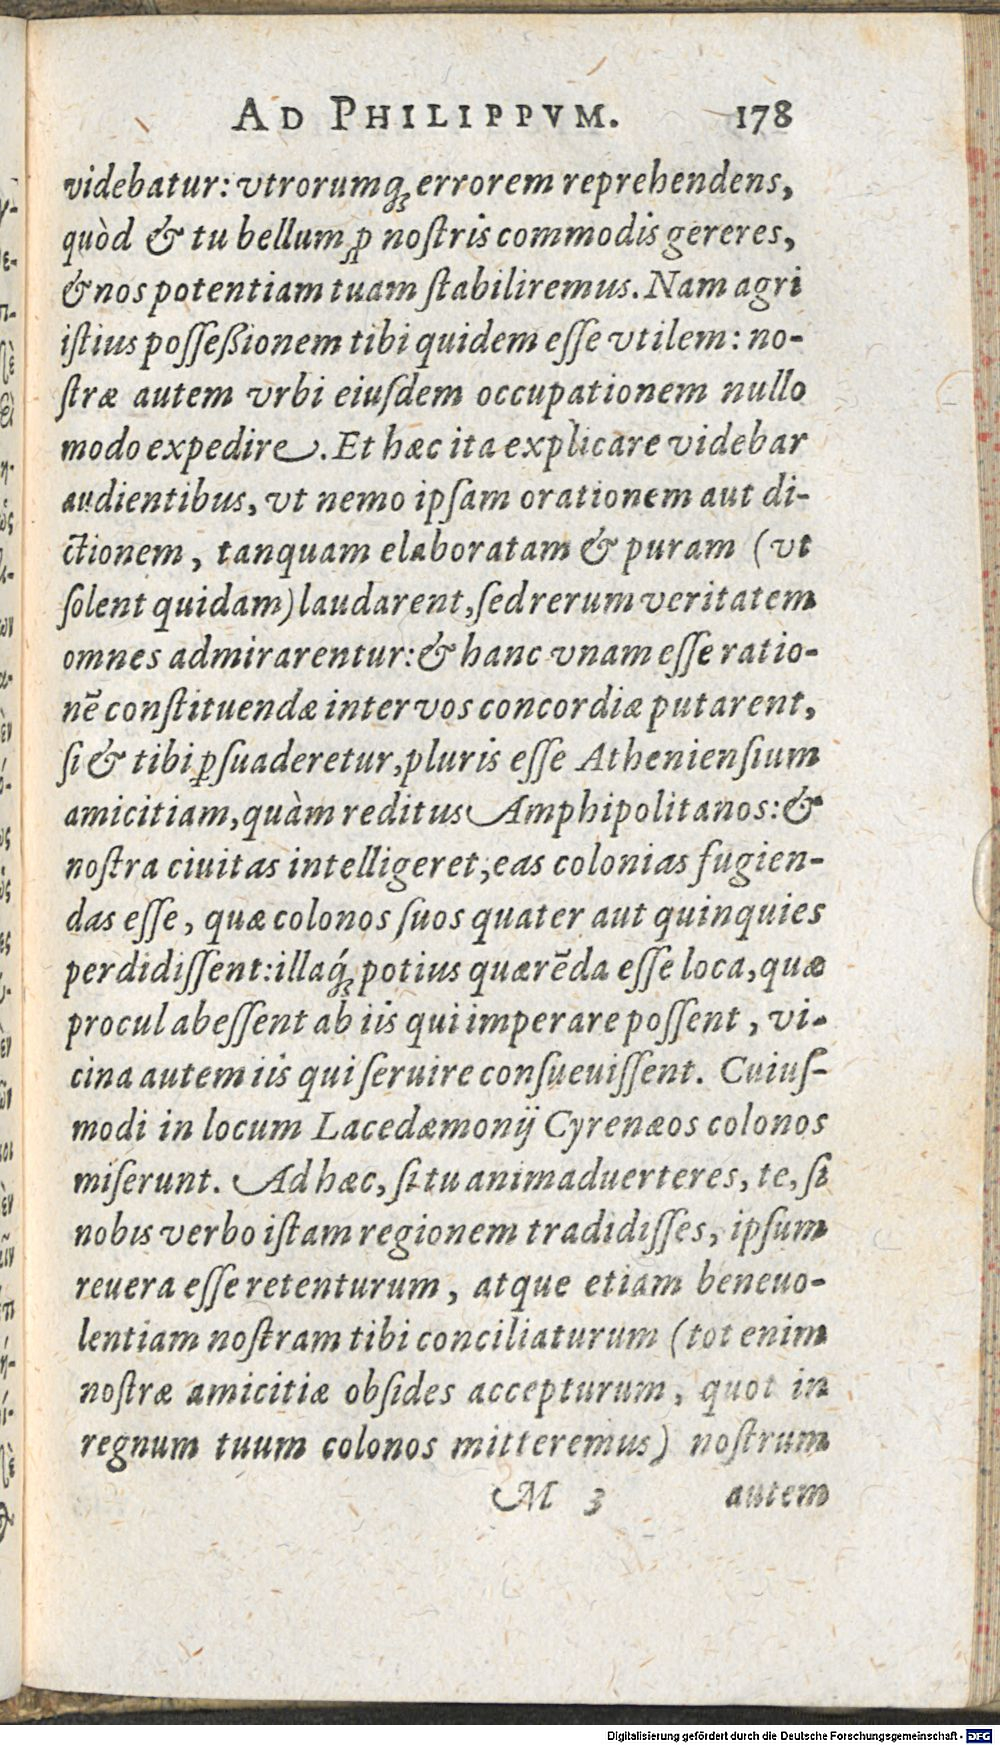 AD PHILIPPVM. 178
videbatur: vtrorumq́ꝫ errorem reprehendens,
quòd & tu bellum ꝓ noſtris commodis gereres,
& nos potentiam tuam ſtabiliremus. Nam agri
iſtius poſſeßionem tibi quidem eſſe vtilem: no-
ſtræ autem vrbi eiuſdem occupationem nullo
modo expedire. Et hæc ita explicare videbar
audientibus, vt nemo ipſam orationem aut di-
ctionem, tanquam elaboratam & puram (vt
ſolent quidam) laudarent, ſed rerum veritatem
omnes admirarentur: & hanc vnam eſſe ratio-
nē conſtituendæ inter vos concordiæ putarent,
ſi & tibi ꝑſuaderetur, pluris eſſe Athenienſium
amicitiam, quàm reditus Amphipolitanos: &
noſtra ciuitas intelligeret, eas colonias fugien-
das eſſe, quæ colonos ſuos quater aut quinquies
perdidiſſent: illaq́ꝫ potius quærēda eſſe loca, quæ
procul abeſſent ab iis qui imperare poſſent, vi-
cina autem iis qui ſeruire conſueuiſſent. Cuiuſ-
modi in locum Lacedæmonij Cyrenæos colonos
miſerunt. Ad hæc, ſi tu animaduerteres, te, ſi
nobis verbo iſtam regionem tradidiſſes, ipſum
reuera eſſe retenturum, atque etiam beneuo-
lentiam noſtram tibi conciliaturum (tot enim
noſtræ amicitiæ obſides accepturum, quot in
regnum tuum colonos mitteremus) noſtrum
M 3 autem
Digitalisierung gefördert durch die Deutsche Forschungsgemeinschaft - DFG